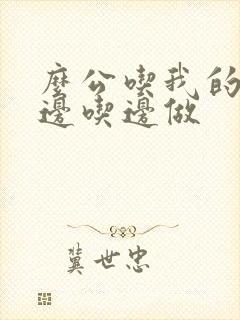 麼公喫我的
邊喫邊做
冀世忠